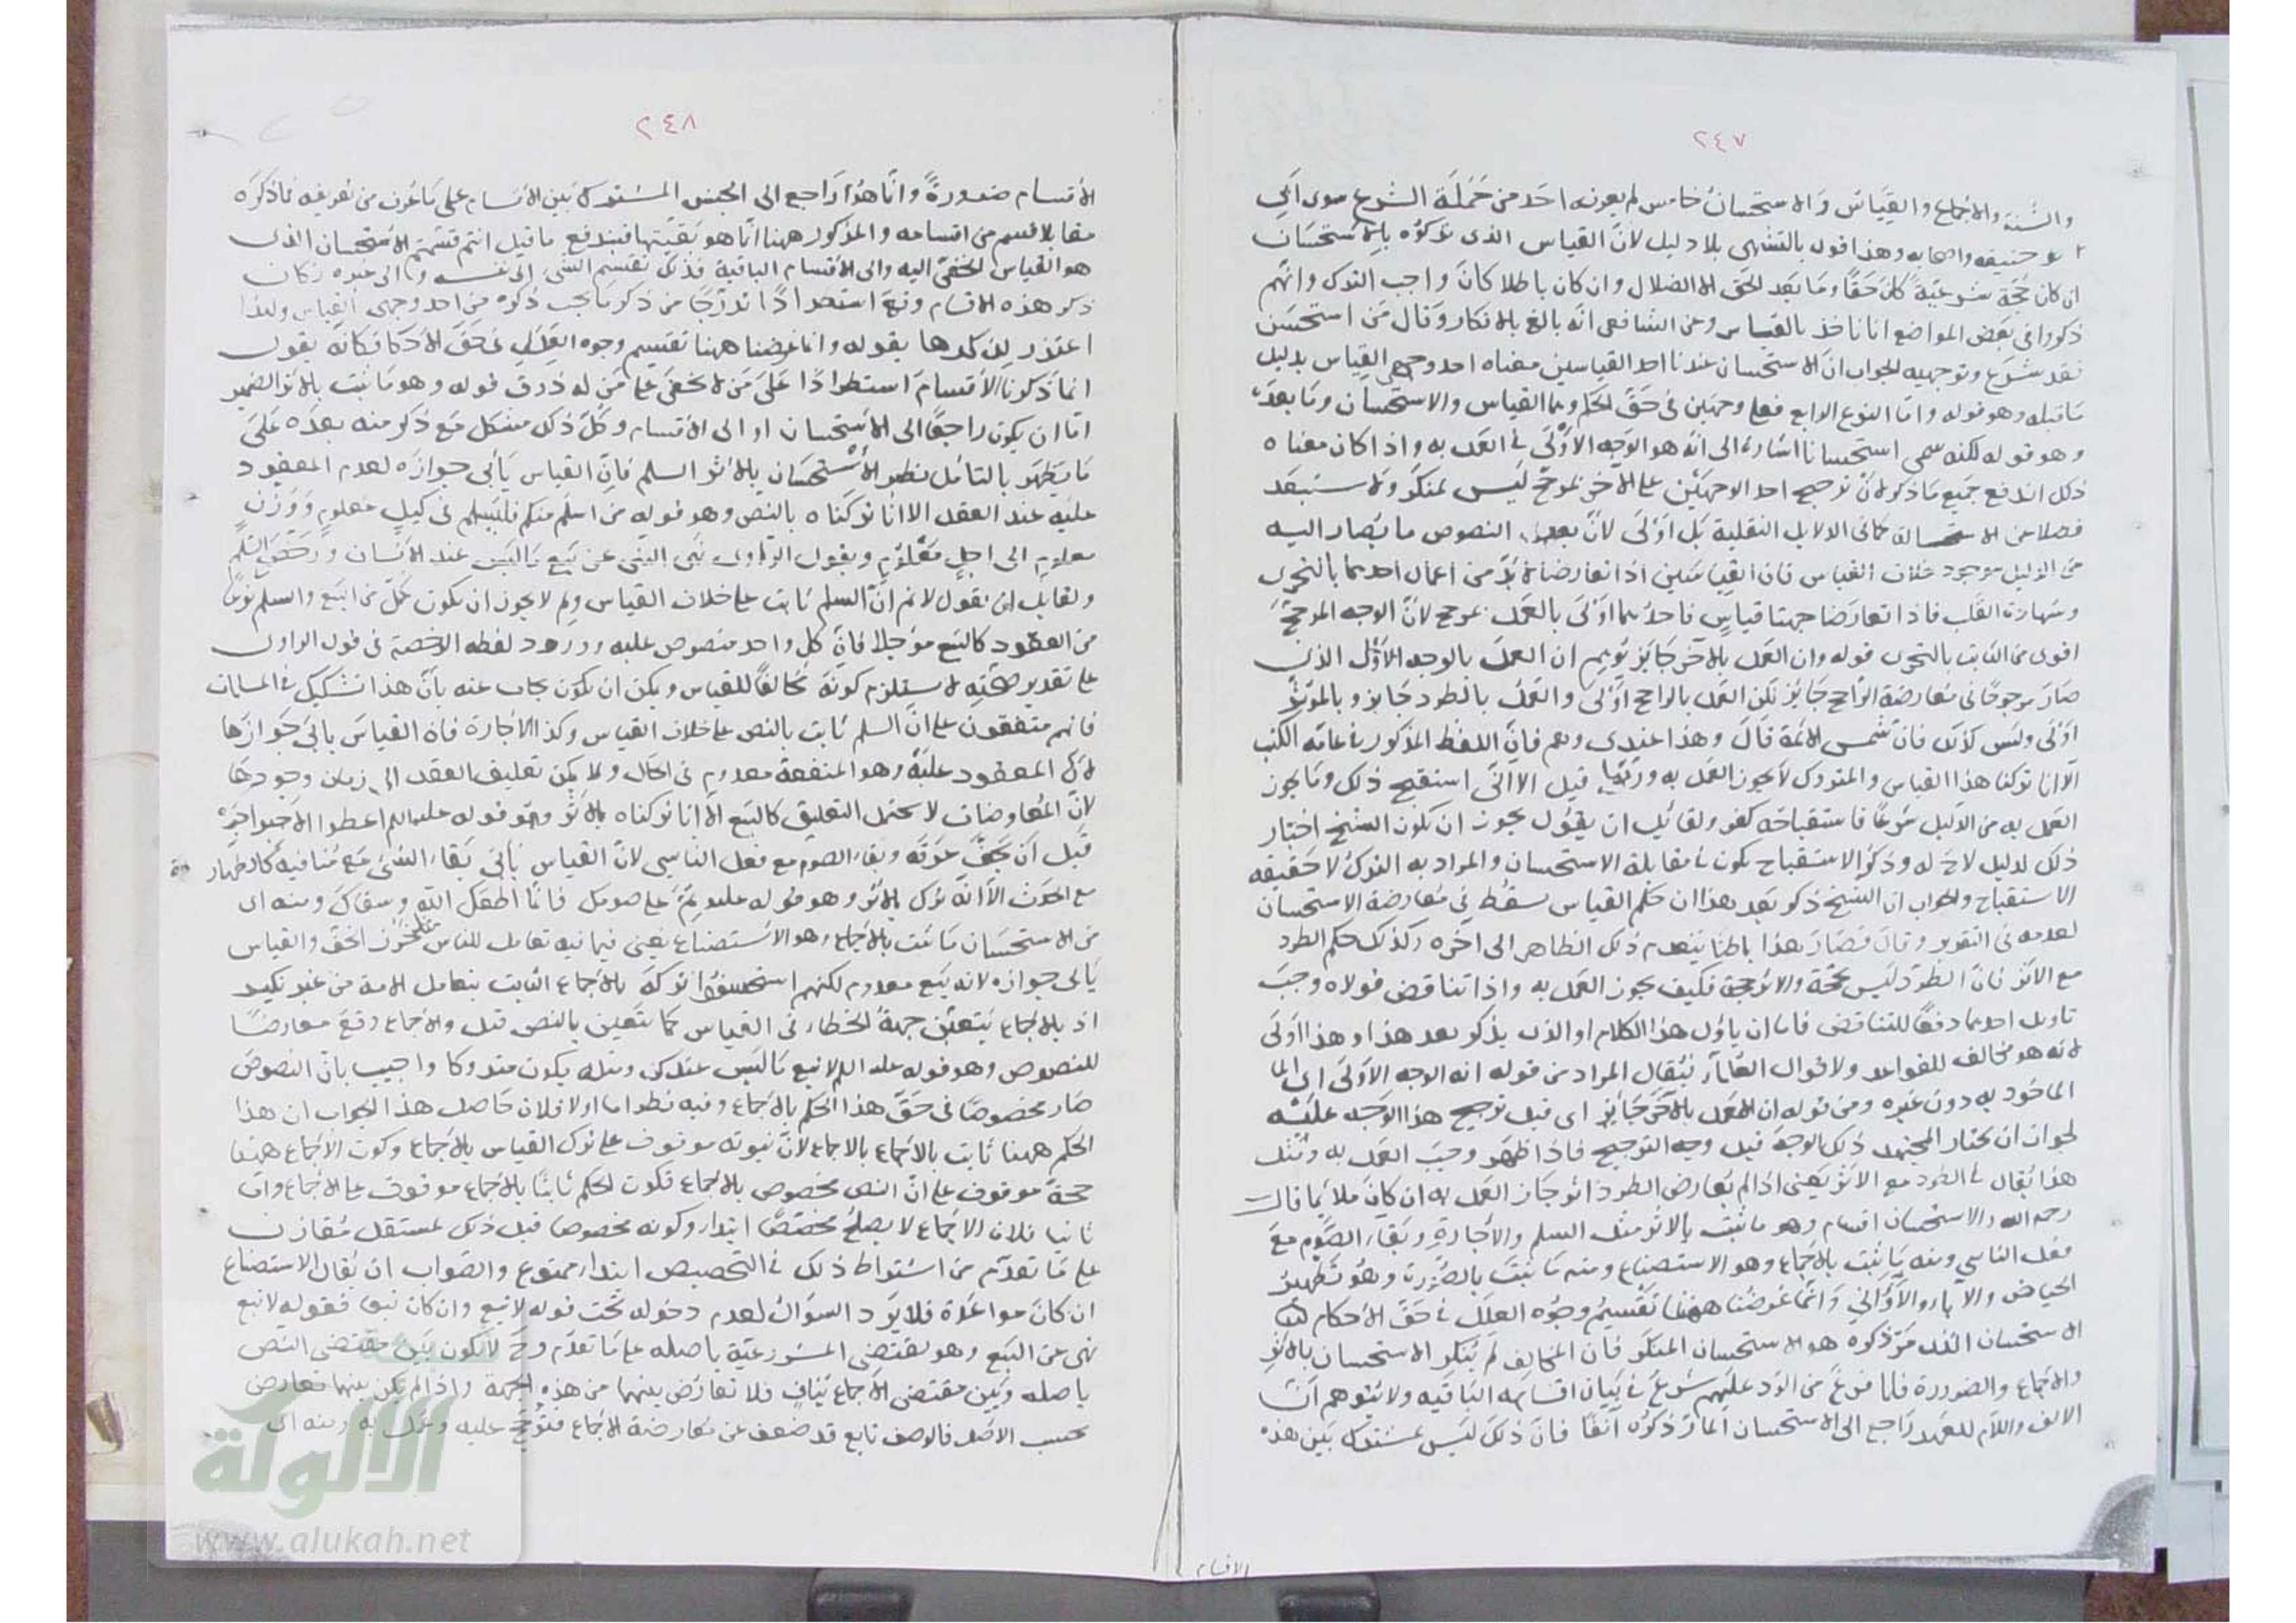 ٢٤٧
والسنة والاجماع والقياس والاستحسان خامس لم يعرفه احد من حملة الشرع سوى ابي
حنيفه واصحابه وهذا قول بالتشهى بلا دليل لان القياس الذى تركوه بالاستحسان
ان كان حجة شرعية كان حقا وما بعد الحق الا الضلال وان كان باطلا كان واجب الترك وانهم
ذكروا فى بعض المواضع انا ناخذ بالقياس وعن الشافعى انه بالغ بالانكار وقال من استحسن
فقد شرع وتوجيه الجواب ان الاستحسان عندنا احد القياسين معناه احد وجهى القياس بدليل
ما قبله وهو قوله واما النوع الرابع فعلى وجهين فى حق الحكم وهما القياس والاستحسان وما بعده
وهو قوله لكنه سمى استحسانا اشارة الى انه هو الوجه الاولى فى العمل به واذا كان معناه
ذلك اندفع جميع ما ذكر لان ترجيح احد الوجهين على الاخر بمرجح ليس بمنكر ولا مستبعد
فضلا عن الاستحالة كما فى الدلايل النقلية بل اولى لان بعد النصوص ما يصار اليه
من الدليل موجود خلاف القياس فان القياسين اذا تعارضا لا بد من اعمال احدهما بالتحرى
وشهادة القلب فاذا تعارضا جهتا قياس فاحدهما اولى بالعمل بمرجح لان الوجه المرجح
اقوى من الثابت بالتحرى قوله وان العمل بالاخر جايز يوهم ان العمل بالوجه الاول الذى
صار مرجوحا فى معارضة الراجح جائز لكن العمل بالراجح اولى والعمل بالطرد جايز وبالمؤثر
اولى وليس كذلك فان شمس الائمة قال وهذا عندى وهم فان اللفظ المذكور فى عامة الكتب
الا انا تركنا هذا القياس والمتروك لا يجوز العمل به وربما قيل الا انى استقبح ذلك وما يجوز
العمل به من الدليل شرعا فاستقباحه كفر ولقائل ان يقول يجوز ان يكون الشيخ اختار
ذلك لدليل لاح له وذكر الاستقباح يكون فى مقابلة الاستحسان والمراد به الترك لا حقيقه
الاستقباح والجواب ان الشيخ ذكر بعد هذا ان حكم القياس يسقط فى معارضة الاستحسان
لعدمه فى التقدير وقال فصار هذا باطنا ينعدم ذلك الظاهر الى اخره وكذلك حكم الطرد
مع الاثر فان الطرد ليس بحجة والاثر حجة فكيف يجوز العمل به واذا تناقض قولاه وجب
تاويل احدهما دفعا للتناقض فاما ان ياول هذا الكلام او الذى يذكر بعد هذا وهذا اولى
لانه هو مخالف للقواعد ولاقوال العلماء فيقال المراد من قوله انه الوجه الاولى اى
الماخوذ به دون غيره ومن قوله ان العمل بالاخر جايز اى قبل ترجيح هذا الوجه عليه
لجواز ان يختار المجتهد ذلك الوجه قبل وجه الترجيح فاذا ظهر وجب العمل به ومثل
هذا يقال فى الطرد مع الاثر يعنى اذا لم يعارض الطرد اثر جاز العمل به ان كان ملايما قال
رحمه الله والاستحسان اقسام وهو ما ثبت بالاثر مثل السلم والاجارة وبقاء الصوم مع
فعل الناسي ومنه ما ثبت بالاجماع وهو الاستصناع ومنه ما ثبت بالضرورة وهو تطهير
الحياض والابار والاواني وانما غرضنا ههنا تقسيم وجوه العلل فى حق الاحكام
الاستحسان الذى مر ذكره هو الاستحسان المنكر فان المخالف لم ينكر الاستحسان بالاثر
والاجماع والضرورة فلما فرغ من الرد عليهم شرع فى بيان اقسامه الباقيه ولا يتوهم ان
الالف واللام للعهد راجع الى الاستحسان المار ذكره آنفا فان ذلك ليس بمشترك بين هذه
الاقسام
٢٤٨
الاقسام ضرورة وانما هو راجع الى الجنس المشترك بين الاقسام على ما عرف من تعريفه فما ذكره
مقابلا قسم من اقسامه والمذكور ههنا انما هو بقيتها فيندفع ما قيل انتم قسمتم الاستحسان الذى
هو القياس الخفى اليه والى الاقسام الباقية فذلك تقسيم الشئ الى نفسه والى غيره وكان
ذكر هذه الاقسام وقع استطرادا تدرجا من ذكر ما يجب ذكره من احد وجهى القياس ولهذا
اعتذر لذكرها بقوله وانما غرضنا ههنا تقسيم وجوه العلل فى حق الاحكام فكانه يقول
انما ذكرنا الاقسام استطرادا على من لا يخفى على من له ذوق قوله وهو ما ثبت بالاثر الضمير
اما ان يكون راجعا الى الاستحسان او الى الاقسام وكل ذلك مشكل مع ذكر منه بعده على
ما يظهر بالتامل نظير الاستحسان بالاثر السلم فان القياس يأبى جوازه لعدم المعقود
عليه عند العقد الا انا تركناه بالنص وهو قوله من اسلم منكم فليسلم فى كيل معلوم ووزن
معلوم الى اجل معلوم وبقول الراوى نهى النبى عن بيع ما ليس عند الانسان ورخص فى السلم
ولقايل ان يقول لا نم ان السلم ثابت على خلاف القياس ولم لا يجوز ان يكون كل من البيع والسلم نوعا
من العقود كالبيع مؤجلا فان كل واحد منصوص عليه وورود لفظه الرخصة فى قول الراوى
على تقدير صحته لا يستلزم كونه مخالفا للقياس ويمكن ان يكون يجاب عنه بان هذا تشكيك فى المسلمات
فانهم متفقون على ان السلم ثابت بالنص على خلاف القياس وكذا الاجارة فان القياس يابى جوازها
لان المعقود عليه وهو المنفعة معدوم فى الحال ولا يمكن تعليق العقد الى زمان وجودها
لان المعاوضات لا تحتمل التعليق كالبيع الا انا تركناه بالاثر وهو قوله عليه السلم اعطوا الاجير اجره
قبل ان يجف عرقه وبقاء الصوم مع فعل الناسى لان القياس يأبى بقاء الشئ مع منافيه كالطهارة
مع الحدث الا انه ترك بالاثر وهو قوله عليه تم على صومك فانما اطعمك الله وسقاك ومنه اى
من الاستحسان ما ثبت بالاجماع وهو الاستصناع يعنى فيما فيه تعامل للناس الخف والقياس
يأبى جوازه لانه بيع معدوم لكنهم استحسنوا تركه بالاجماع الثابت بتعامل الامة من غير نكير
اذ بالاجماع يتعين جهة الخطاء فى القياس كما يتعين بالنص قيل والاجماع وقع معارضا
للنصوص وهو قوله عليه السلم لا تبع ما ليس عندك ومثله يكون متروكا واجيب بان النصوص
صار مخصوصا فى حق هذا الحكم بالاجماع وفيه نظر اما اولا فلان حاصل هذا الجواب ان هذا
الحكم ههنا ثابت بالاجماع بالاجماع لان ثبوته موقوف على ترك القياس بالاجماع وكون الاجماع ههنا
حجة موقوف على ان النص مخصوص بالاجماع فكون الحكم ثابتا بالاجماع موقوف على الاجماع واما
ثانيا فلان الاجماع لا يصلح مخصصا ابتداء وكونه مخصوصا قبل ذلك بمستقل مقارن
على ما تقدم من اشتراط ذلك فى التخصيص ابتداء ممنوع والصواب ان يقال الاستصناع
ان كان مواعدة فلا يرد السؤال لعدم دخوله تحت قوله لا تبع وان كان بيعا فقوله لا تبع
نهى عن البيع وهو يقتضى المشروعية باصله على ما تقدم وح لا يكون بين مقتضى النص
باصله وبين مقتضى الاجماع تناف فلا تعارض بينهما من هذه الجهة واذا لم يكن بينهما تعارض
بحسب الاصل فالوصف تابع قد ضعف عن معارضة الاجماع فترجح عليه وعمل به ومنه اى
الألوكة
www.alukah.net